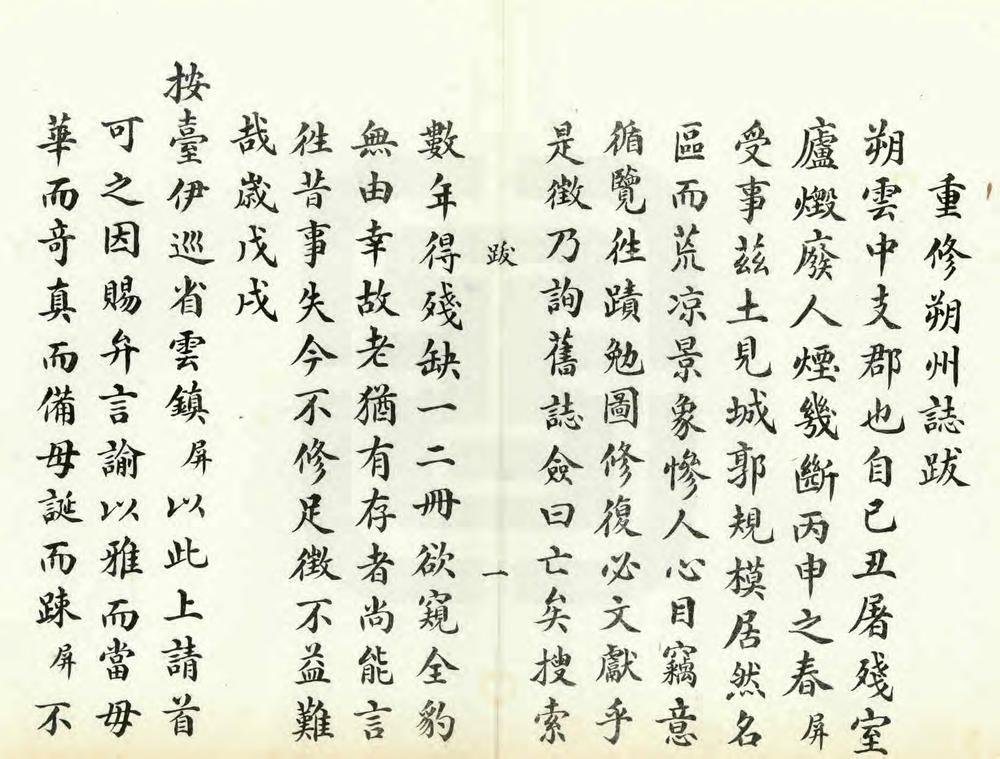 重修朔州誌跋
朔雲中支郡也自己丑屠殘室
廬燬廢人煙幾斷丙申之春屏
受事茲土見城郭規模居然名
區而荒凉景象慘人心目竊意
循覽徃蹟勉圖修復必文獻乎
是徵乃詢舊誌僉曰亡矣搜索
跋
一
數年得殘缺一二冊欲窺全豹
無由幸故老猶有存者尚能言
徃昔事失今不修足徵不益難
哉歲戊戌
按臺伊巡省雲鎮屏以此上請首
可之因賜弁言諭以雅而當毋
華而奇真而備毋誕而踈屏不